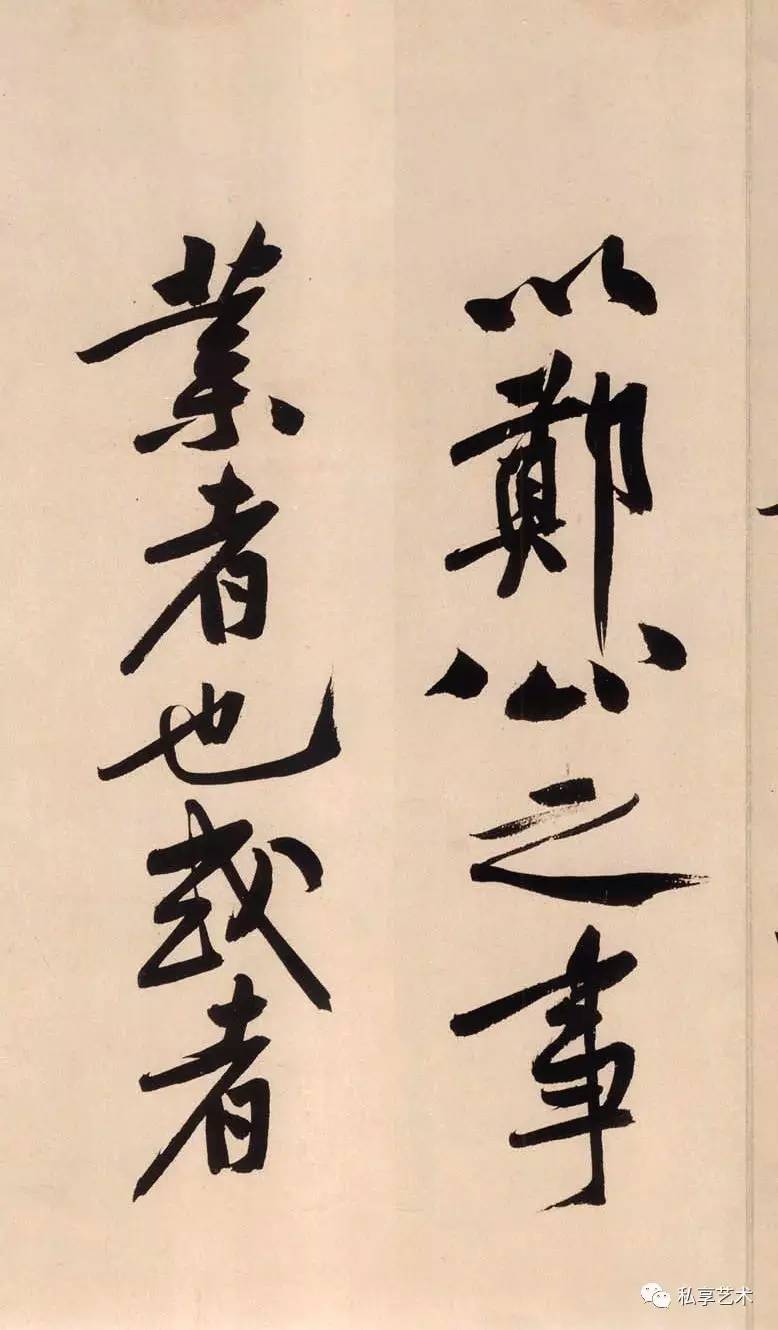 以鄭公之事
業者也或者
私享艺术